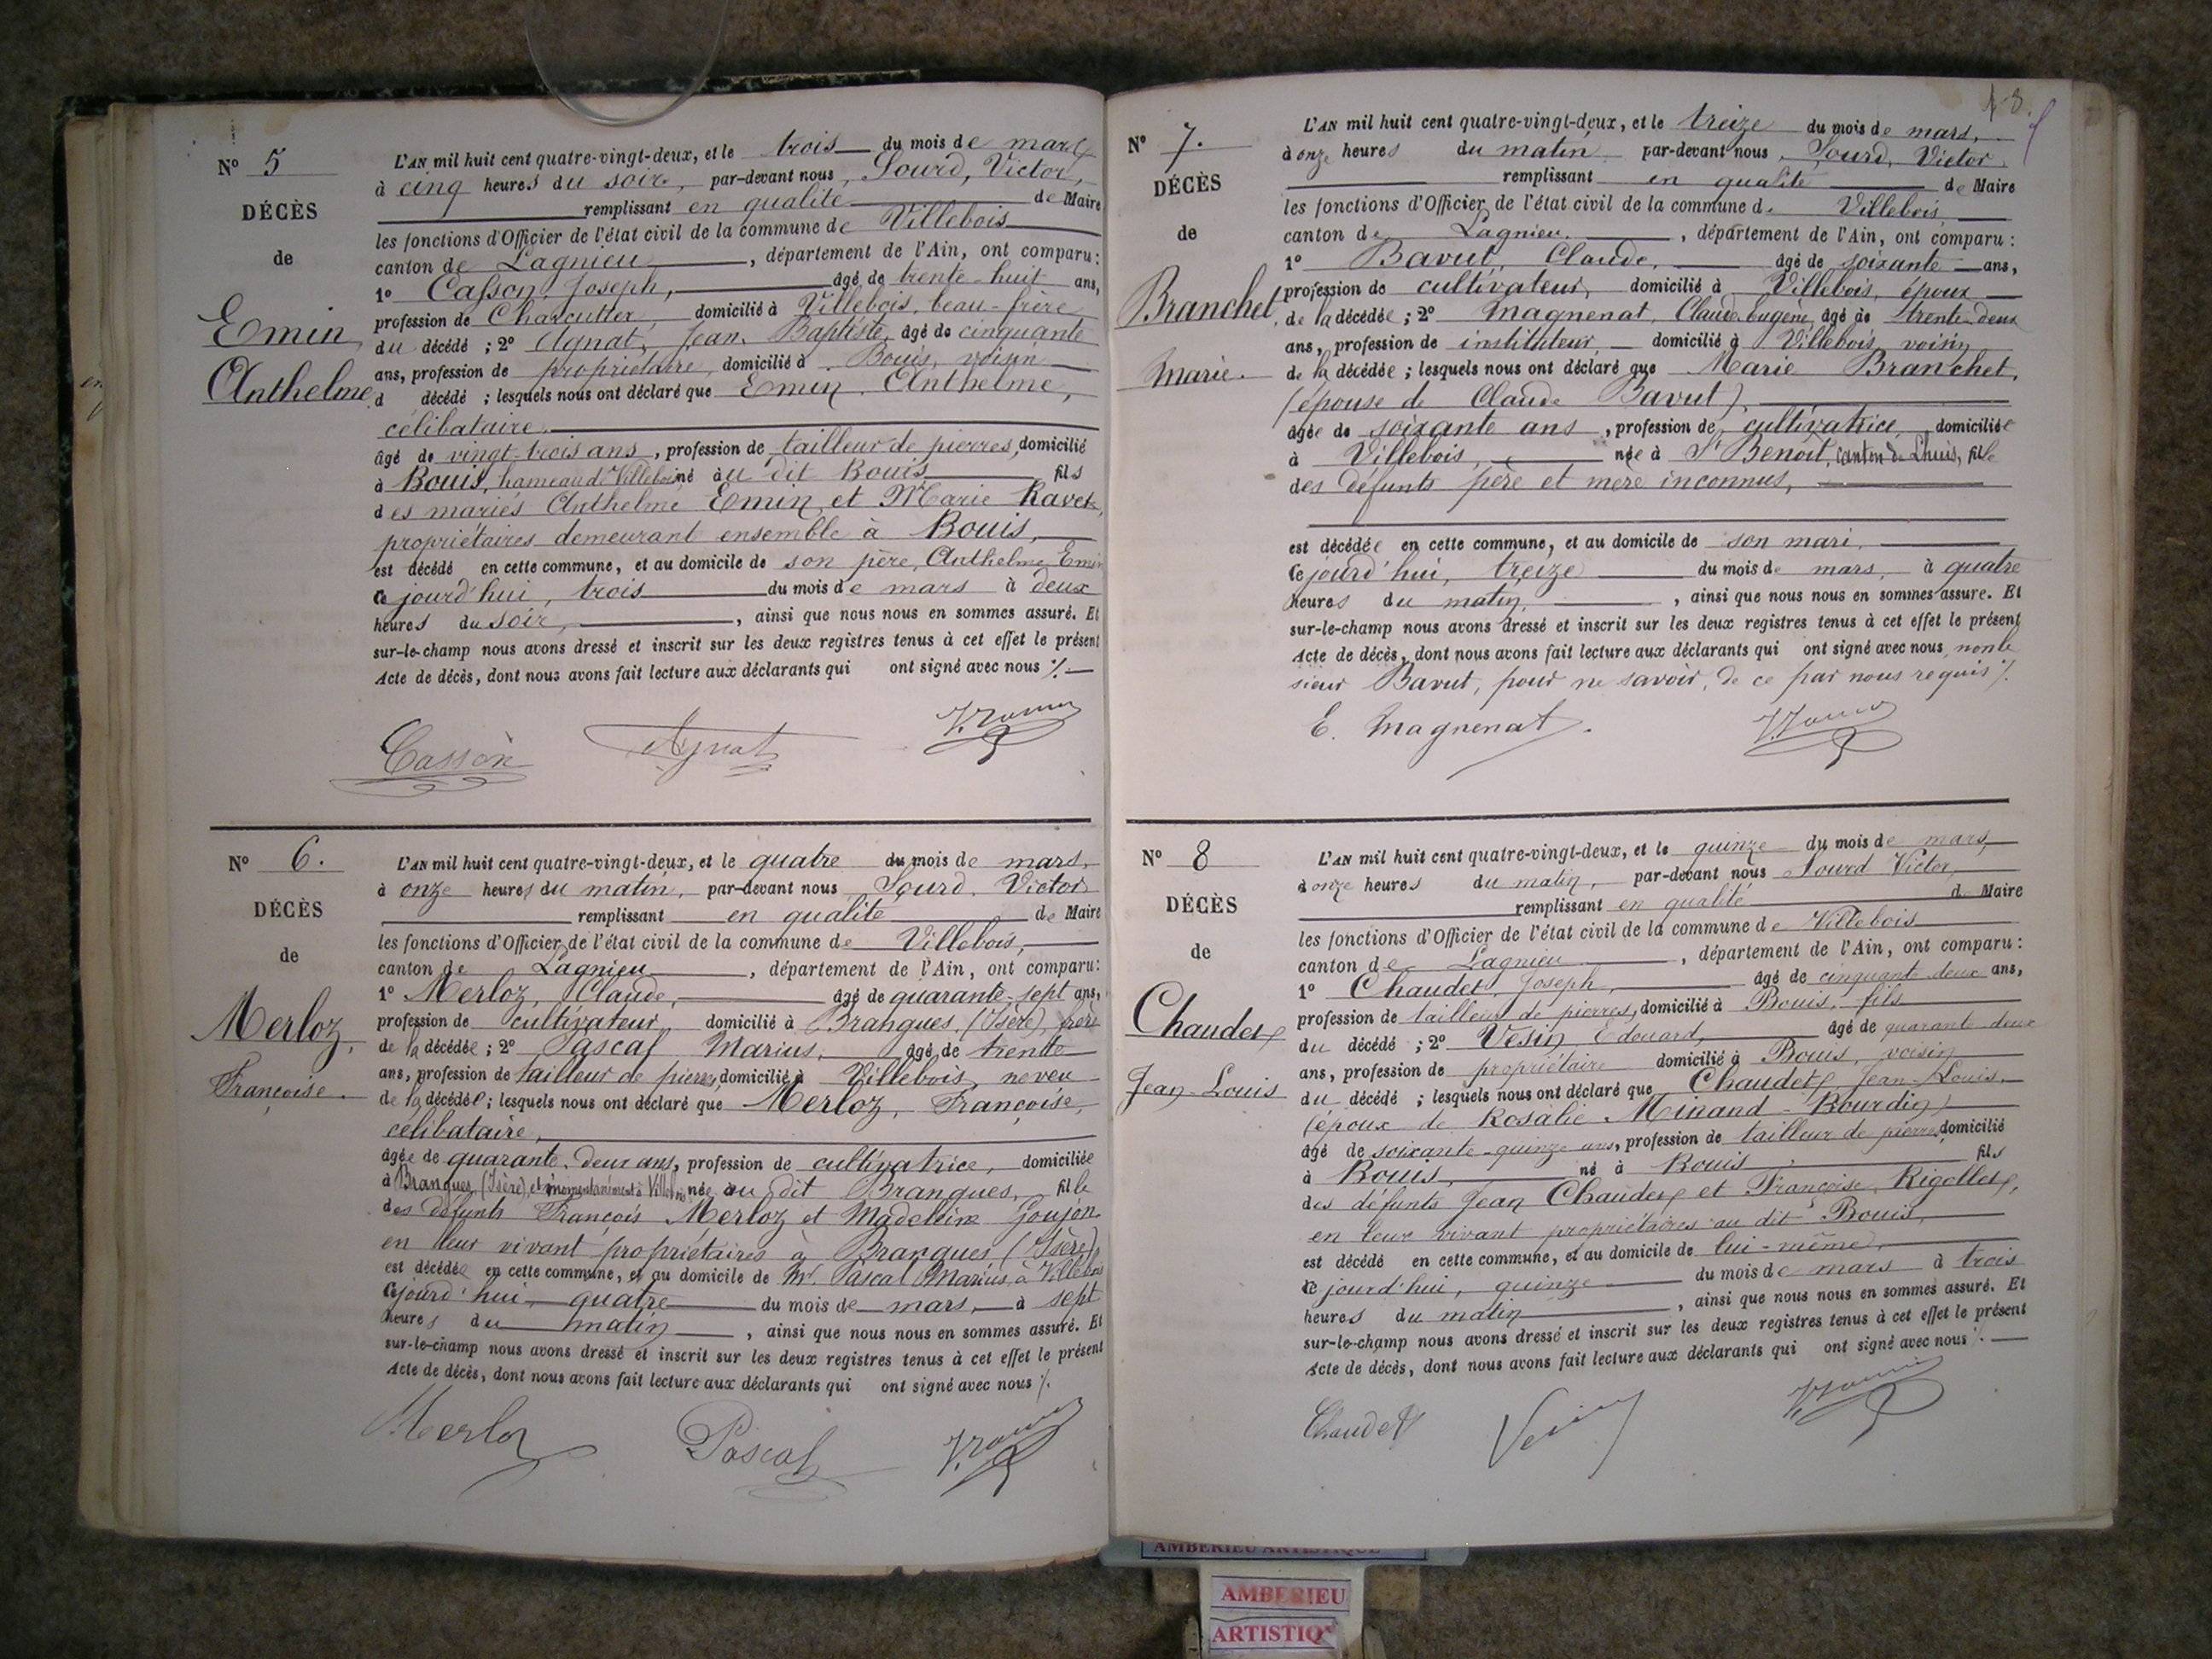 N° 5
DÉCÈS
de
Emin
Anthelme
L'AN mil huit cent quatre-vingt-deux, et le trois du mois de mars
à cinq heures du soir, par-devant nous, Sourd, Victor,
remplissant en qualité de Maire
les fonctions d'Officier de l'état civil de la commune de Villebois
canton de Lagnieu, département de l'Ain, ont comparu:
1° Casson, Joseph, âgé de trente-huit ans,
profession de Charcutier domicilié à Villebois, beau-frère
du décédé ; 2° Agnat, Jean, Baptiste, âgé de cinquante
ans, profession de propriétaire, domicilié à Bouis, voisin
d décédé ; lesquels nous ont déclaré que Emin, Anthelme,
célibataire
âgé de vingt-trois ans, profession de tailleur de pierres, domicilié
à Bouis, hameau de Villebois né au dit Bouis fils
des mariés Anthelme Emin et Marie Ravet,
propriétaires demeurant ensemble à Bouis,
est décédé en cette commune, et au domicile de son père, Anthelme Emin
ce jourd'hui, trois du mois de mars à deux
heures du soir, ainsi que nous nous en sommes assuré. Et
sur-le-champ nous avons dressé et inscrit sur les deux registres tenus à cet effet le présent
Acte de décès, dont nous avons fait lecture aux déclarants qui ont signé avec nous ./.
Casson Agnat
N° 6.
DÉCÈS
de
Merloz,
Françoise.
L'AN mil huit cent quatre-vingt-deux, et le quatre du mois de mars,
à onze heures du matin, par-devant nous Sourd, Victor
remplissant en qualité de Maire
les fonctions d'Officier de l'état civil de la commune de Villebois,
canton de Lagnieu, département de l'Ain, ont comparu:
1° Merloz, Claude, âgé de quarante-sept ans,
profession de cultivateur domicilié à Brangues, (Isère), frère
de la décédée ; 2° Pascal Marius, âgé de trente
ans, profession de tailleur de pierres, domicilié à Villebois, neveu
de la décédée ; lesquels nous ont déclaré que Merloz, Françoise,
célibataire,
âgée de quarante-deux ans, profession de cultivatrice, domiciliée
à Brangues, (Isère), et momentanément à Villebois née au dit Brangues, fille
des défunts François Merloz et Madeleine Goujon
en leur vivant propriétaires à Brangues (Isère)
est décédée en cette commune, et au domicile de Mr. Pascal Marius, à Villebois
Cejourd'hui, quatre du mois de mars, à sept
heures du matin, ainsi que nous nous en sommes assuré. Et
sur-le-champ nous avons dressé et inscrit sur les deux registres tenus à cet effet le présent
Acte de décès, dont nous avons fait lecture aux déclarants qui ont signé avec nous ./.
Merloz Pascal
N° 7.
DÉCÈS
de
Branchet,
Marie.
L'AN mil huit cent quatre-vingt-deux, et le treize du mois de mars,
à onze heures du matin par-devant nous, Sourd, Victor
remplissant en qualité de Maire
les fonctions d'Officier de l'état civil de la commune de Villebois
canton de Lagnieu, département de l'Ain, ont comparu :
1° Bavut, Claude, âgé de soixante ans,
profession de cultivateur, domicilié à Villebois, époux
de la décédée ; 2° Magnenat, Claude Eugène, âgé de trente-deux
ans, profession de instituteur domicilié à Villebois, voisin
de la décédée ; lesquels nous ont déclaré que Marie Branchet,
(épouse de Claude Bavut),
âgée de soixante ans, profession de cultivatrice, domiciliée
à Villebois, née à St Benoît, canton de Lhuis, fille
des défunts père et mère inconnus,
est décédée en cette commune, et au domicile de son mari,
Ce jourd'hui, treize du mois de mars, à quatre
heures du matin, ainsi que nous nous en sommes assuré. Et
sur-le-champ nous avons dressé et inscrit sur les deux registres tenus à cet effet le présent
Acte de décès, dont nous avons fait lecture aux déclarants qui ont signé avec nous, non le
sieur Bavut, pour ne savoir, de ce par nous requis ./.
E. Magnenat
N° 8
DÉCÈS
de
Chaudet
Jean-Louis
L'AN mil huit cent quatre-vingt-deux, et le quinze du mois de mars,
à onze heures du matin, par-devant nous Sourd Victor,
remplissant en qualité de Maire
les fonctions d'Officier de l'état civil de la commune de Villebois
canton de Lagnieu, département de l'Ain, ont comparu :
1° Chaudet, Joseph, âgé de cinquante deux ans,
profession de tailleur de pierres, domicilié à Bouis, fils
du décédé ; 2° Vesin, Edouard, âgé de quarante deux
ans, profession de propriétaire domicilié à Bouis, voisin
du décédé ; lesquels nous ont déclaré que Chaudet, Jean-Louis,
(époux de Rosalie Minand-Bourdin)
âgé de soixante-quinze ans, profession de tailleur de pierres, domicilié
à Bouis, né à Bouis fils
des défunts Jean Chaudet et Françoise Rigollet,
en leur vivant propriétaires au dit Bouis,
est décédé en cette commune, et au domicile de lui-même,
Ce jourd'hui, quinze du mois de mars à trois
heures du matin, ainsi que nous nous en sommes assuré. Et
sur-le-champ nous avons dressé et inscrit sur les deux registres tenus à cet effet le présent
Acte de décès, dont nous avons fait lecture aux déclarants qui ont signé avec nous ./.
Chaudet Vesin
AMBERIEU ARTISTIQUE
AMBERIEU
ARTISTIQ